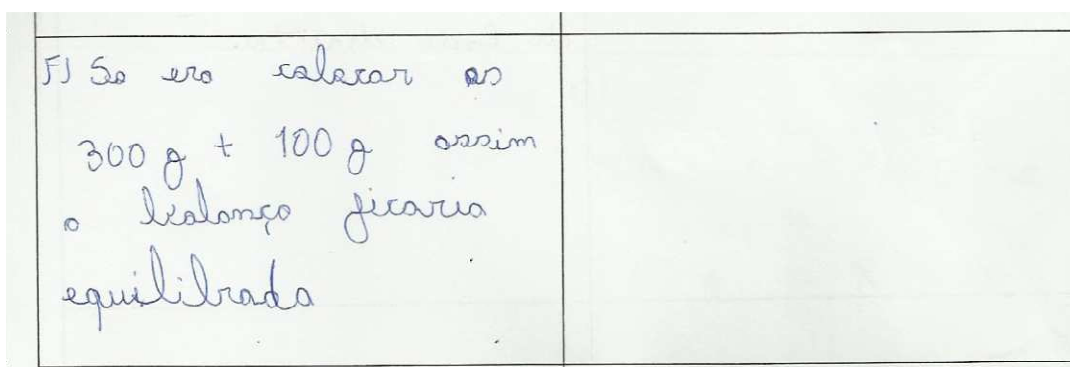 F) So era colocar os
300 g + 100 g assim
a balança ficaria
equilibrada